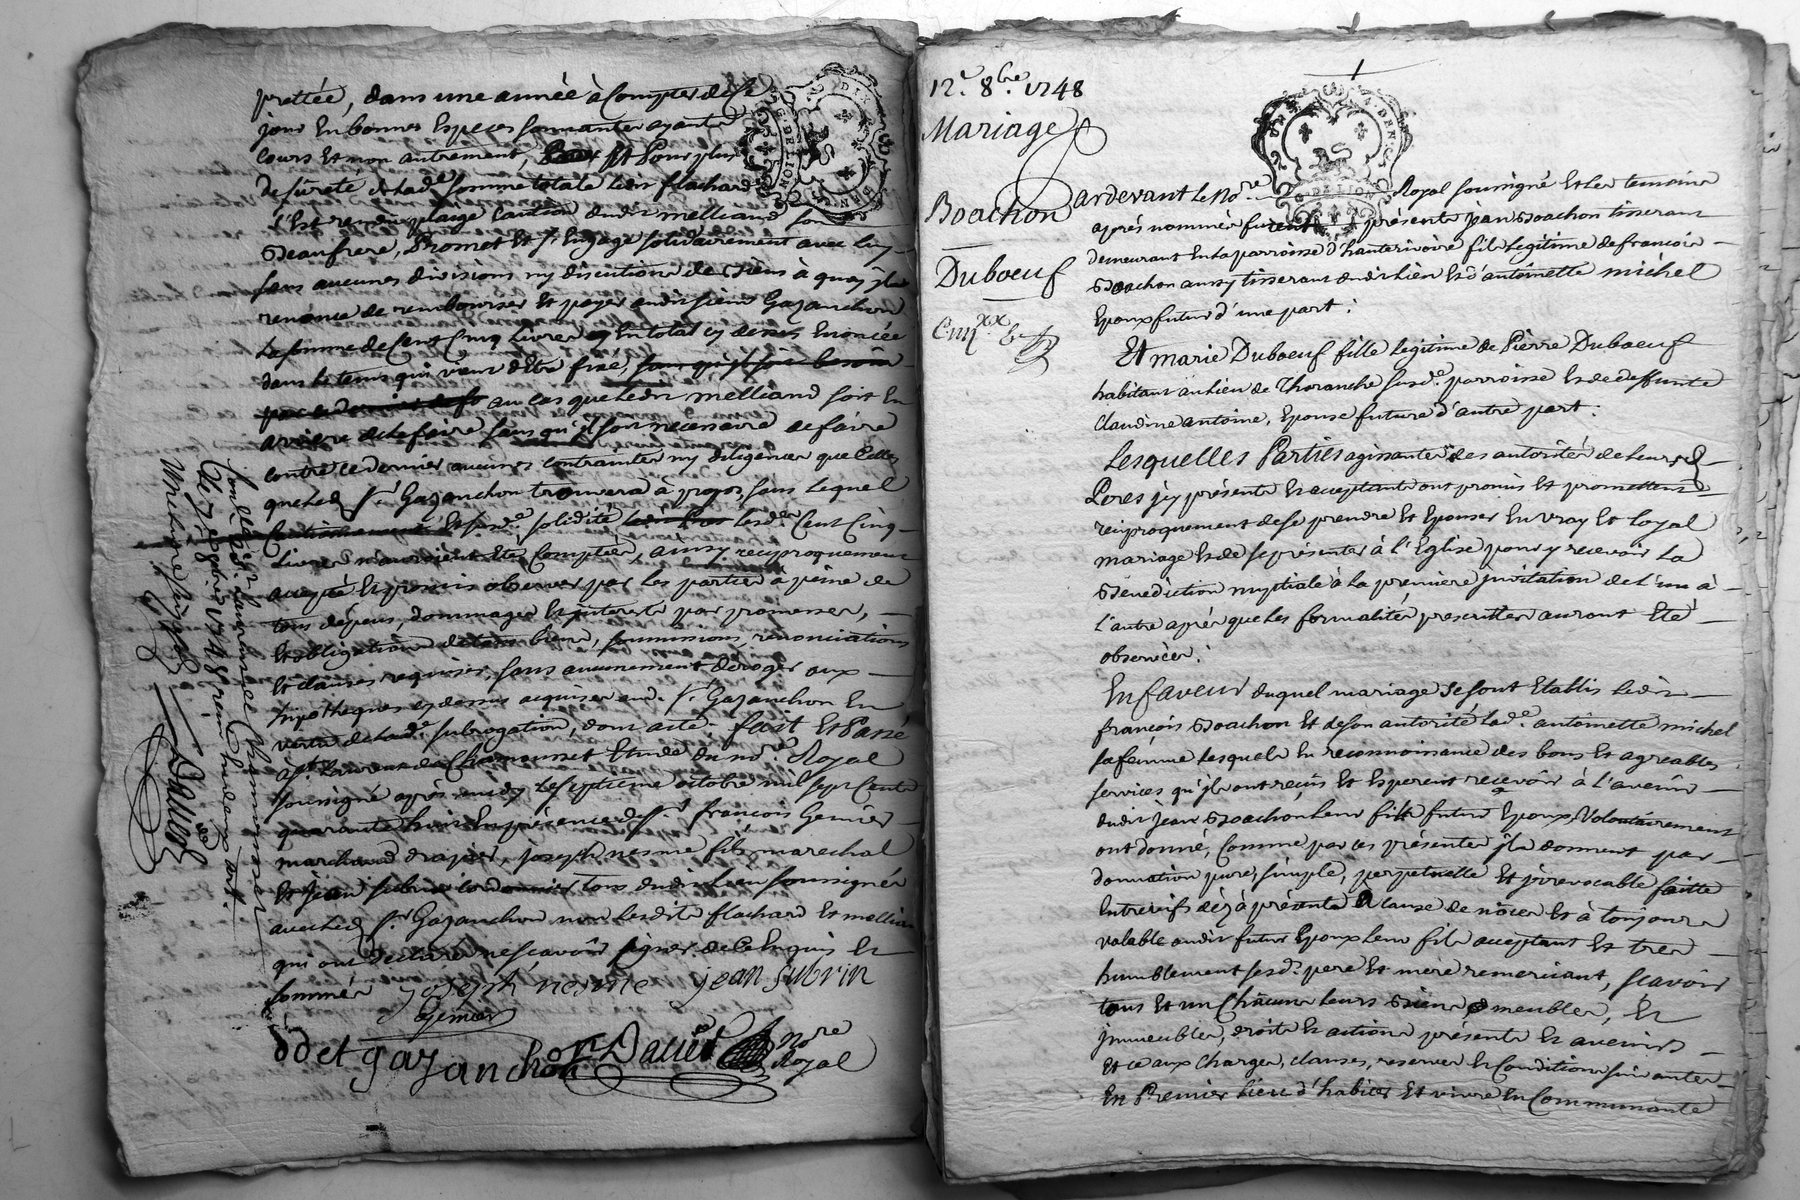 prettée, dans une année à Compter de Ce
jour En bonnes Especes sonnantes ayant
cours Et non autrement, Et Pour plus
De sûreté de lad.e somme totale ledit flachard
s'Est rendu plaige Caution dudit melliand son
Beaufrere, Promet Et s'Engage solidairement avec luy
sans aucunes divisions ny discution de Biens à quoy il
renonce de rembourser Et payer audit sieur Gazanchon
La somme de Cent Cinq Livres En total cy dessus Enoncée
dans le tems qui vient d'être fixé, sans qu'il soit besoin
au cas que ledit melliand soit En
arriere de le faire sans qu'il soit necessaire de faire
contre ce dernier aucunes contraintes ny diligences que Celles
que led. Sr Gazanchon trouvera à propos, sans lequel
Et susd.e solidité lesd. Cent Cinq
Livres n'auroient Eté Comptées, ainsy reciproquement
accepté Et promis observer par les parties à peine de
tous dépens, dommages Et interests par promesses,
Et obligation de tous biens, soumissions renonciations
Et clauses requises, sans aucunement deroger aux
hypotheques cy dessus acquises aud. Sr Gazanchon En
vertu de lad.e subrogation, dont acte. fait Et Passé
à St Laurent de Chamousset Etude du no.re Royal
soussigné après midy Le septieme octobre mil sept Cents
quarante huit En présence de Sr François Genier
marchand drapier, Joseph nesme fils marechal
Et Jean subrin cordonnier tous dudit lieu soussignés
avec led. Sr Gazanchon non lesdits flachard Et melliand
qui ont declaré ne sçavoir signer de Ce Enquis Et
sommés joseph nesme jean Subrin
Genier
odet gazanchon Dacier No.re
Royal
12.e 8.bre 1748
Mariage
Boachon
Duboeuf
Pardevant Le No.re Royal soussigné Et Les temoins
après nommés furent présents jean Boachon tisserant
demeurant En la parroisse d'hauterivoire fils Legitime de françois
Boachon aussy tisserant dudit lieu Et d'antoinette michel
Epoux futur d'une part:
Et marie Duboeuf fille Legitime de Pierre Duboeuf
habitant au lieu de Thoranche susd.e parroisse Et de deffunte
Claudine antoine, Epouse future d'autre part:
Lesquelles Parties agissantes des autorités de Leursd.
Peres icy présents Et acceptants ont promis Et promettent
reciproquement de se prendre Et Epouser En vray Et loyal
mariage Et de se présenter à l'Eglise pour y recevoir La
Bénédiction nuptiale à la premiere invitation de L'un à
L'autre après que les formalités prescrittes auront Eté
observées:
En faveur duquel mariage se sont Etablis Ledit
françois Boachon Et de son autorité lad.e antoinette michel
sa femme Lesquels En reconnoissance des bons Et agreables
services qu'ils ont reçus Et Esperent recevoir à l'avenir
dudit jean Boachon Leur fils futur Epoux, Volontairement
ont donné, Comme par ces présentes ils donnent par
donnation pure, simple, perpetuelle Et irrevocable faitte
Entre vifs dèz à présent à Cause de nôces Et à toujours
valable audit futur Epoux Leur fils acceptant Et tres
humblement sesd. pere Et mere remerciant, scavoir
tous Et un Chacuns leurs Biens meubles, Et
immeubles, droits Et actions présents Et avenirs
Et ce aux Charges, clauses, reserves Et Conditions suivantes
En Premier Lieu d'habiter Et vivre En Communauté